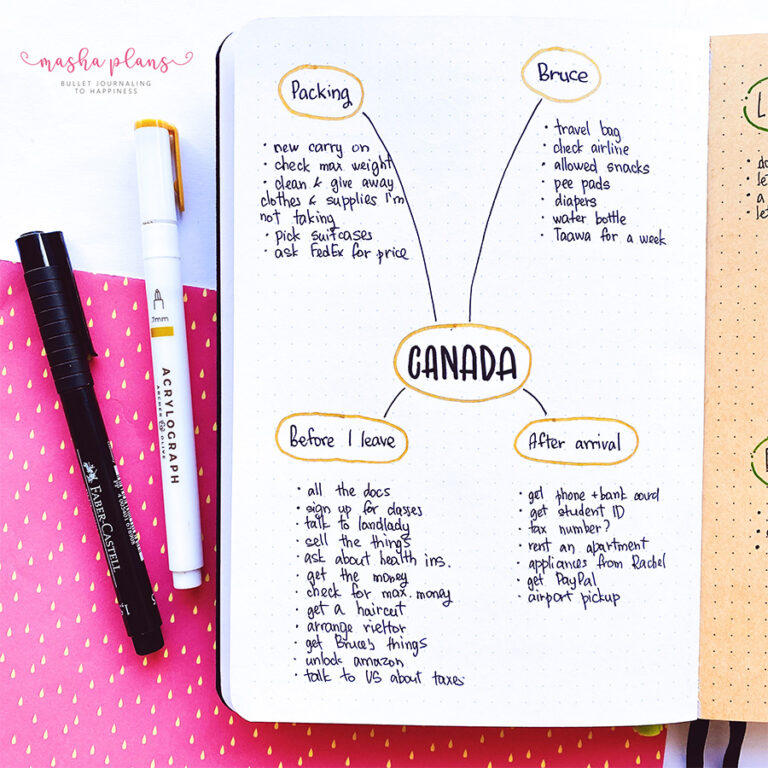 masha plans
BULLET JOURNALING
TO HAPPINESS
Packing
• new carry on
• check max weight
• clean & give away
clothes & supplies I'm
not taking
• pick suitcases
• ask FedEx for price
Bruce
• travel bag
• check airline
• allowed snacks
• pee pads
• diapers
• water bottle
• Taawa for a week
CANADA
Before I leave
• all the docs
• sign up for classes
• talk to landlady
• sell the things
• ask about health ins.
• get the money
• check for max. money
• get a haircut
• arrange rieltor
• get Bruce's things
• unlock amazon
• talk to US about taxes
After arrival
• get phone + bank card
• get student ID
• tax number?
• rent an apartment
• appliances from Rachel
• get PayPal
• airport pickup
ACRYLOGRAPH
ARCHER & OLIVE
FABER-CASTELL